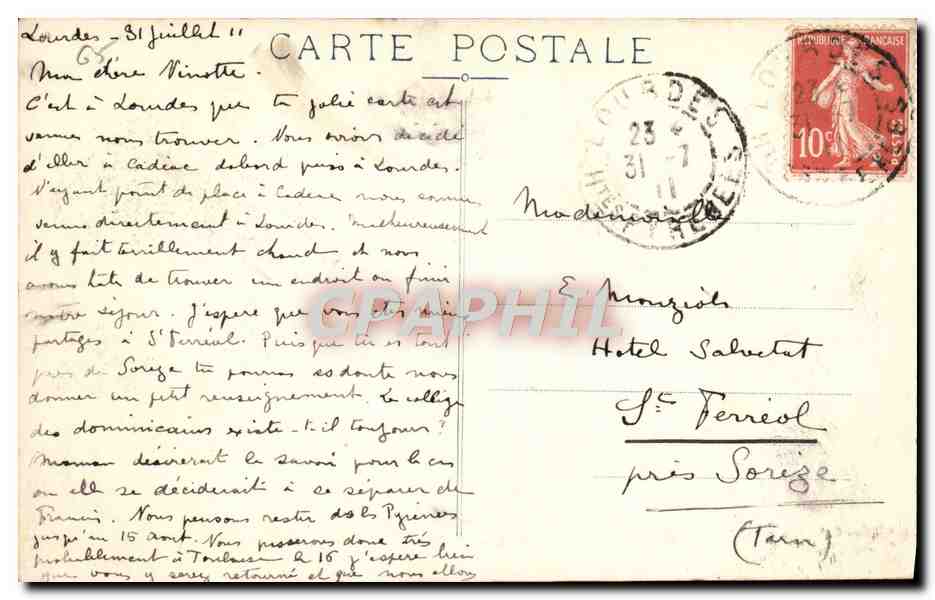 CARTE POSTALE
Lourdes - 31 juillet 11
65
Ma chère Ninotte.
C'est à Lourdes que ta jolie carte est
venue nous trouver. Nous avions décidé
d'aller à Cadéac dabord puis à Lourdes.
N'ayant point de place à Cadéac nous sommes
venus directement à Lourdes. Malheureusement
il y fait terriblement chaud et nous
avons hâte de trouver un endroit où finir
notre séjour. J'espère que vous êtes mieux
partagés à St Ferréol. Puisque tu es tout
près de Sorèze tu pourras sans doute nous
donner un petit renseignement. Le collège
des dominicains existe-t-il toujours?
Maman désirerait le savoir pour le cas
où elle se déciderait à se séparer de
Francis. Nous pensons rester ds les Pyrénées
jusqu'au 15 Aout. Nous passerons donc très
probablement à Toulouse le 16 j'espère bien
que vous y serez retourné et que nous allons
LOURDES
23
31 -7
11
HTES PYRENEES
REPUBLIQUE FRANÇAISE
10c
POSTES
Mademoiselle
E Monziols
Hotel Salvetat
St Ferréol
près Sorèze
(Tarn)
CPAPHIL